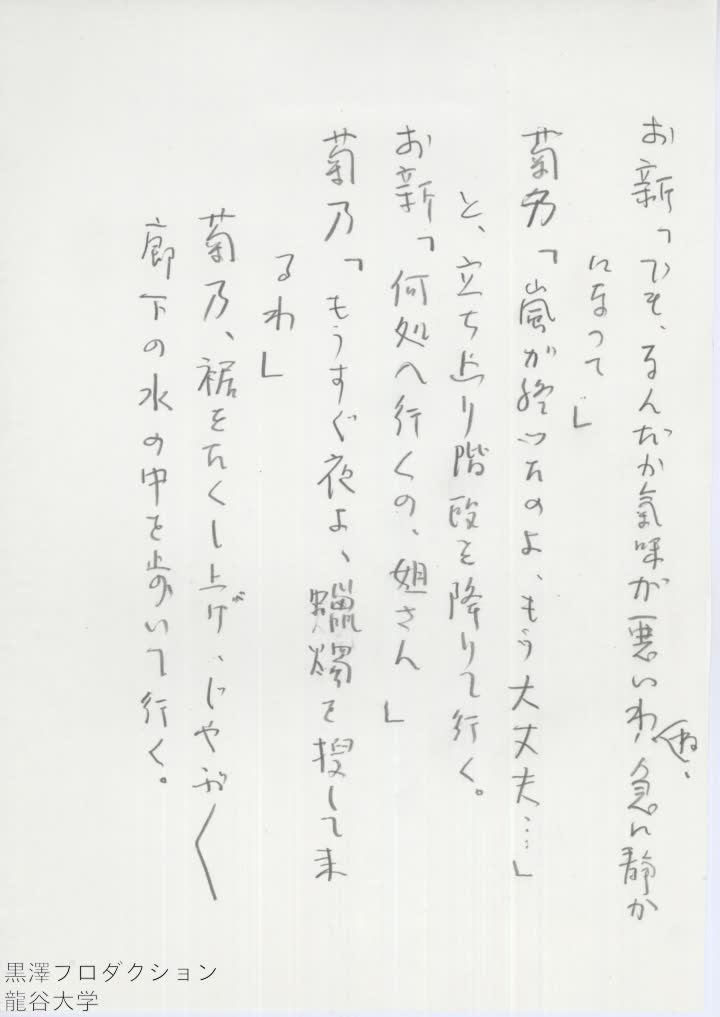 お新「でも、なんだか気味が悪いわね、急に静か
になって」
菊乃「嵐が終ったのよ、もう大丈夫…」
と、立ち上り階段を降りて行く。
お新「何処へ行くの、姐さん」
菊乃「もうすぐ夜よ、蠟燭を捜して来
るわ」
菊乃、裾をたくし上げ、じゃぶ〱
廊下の水の中を歩いて行く。
黒澤フロダクション
龍谷大学